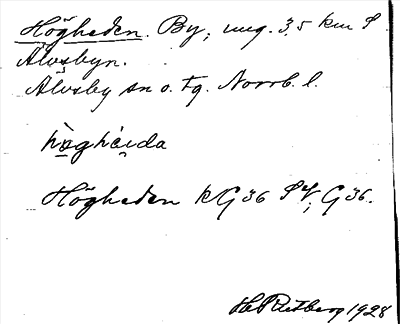 Högheden. By, ung. 3,5 km S
Älvsbyn.
Älvsby sn o. tg. Norrb. l.
hö̀ghéida
Högheden KG36 SV; G36.
1928